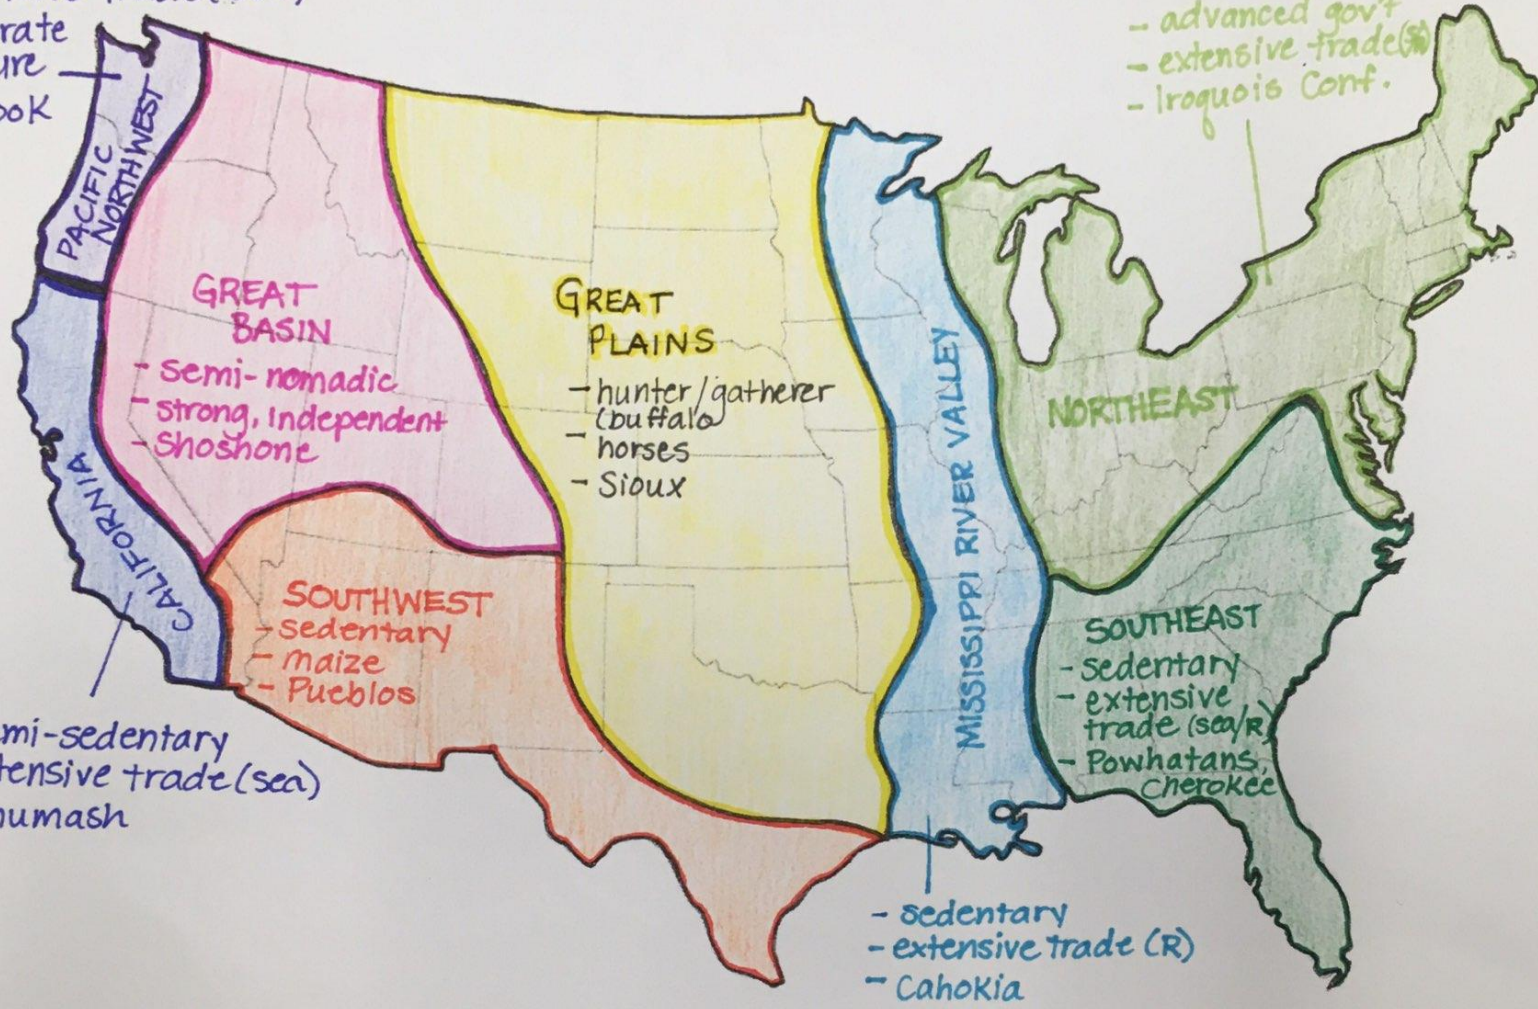 rate
ure
ook
PACIFIC
NORTHWEST
- advanced gov't
- extensive trade
- Iroquois Conf.
GREAT
BASIN
- semi-nomadic
- strong, independent
- Shoshone
GREAT
PLAINS
- hunter/gatherer
(buffalo
- horses
- Sioux
MISSISSIPPI RIVER VALLEY
NORTHEAST
CALIFORNIA
mi-sedentary
tensive trade (sea)
humash
SOUTHWEST
- sedentary
- maize
- Pueblos
SOUTHEAST
- sedentary
- extensive
trade (sea/R)
- Powhatans,
Cherokee
- sedentary
- extensive trade (R)
- Cahokia